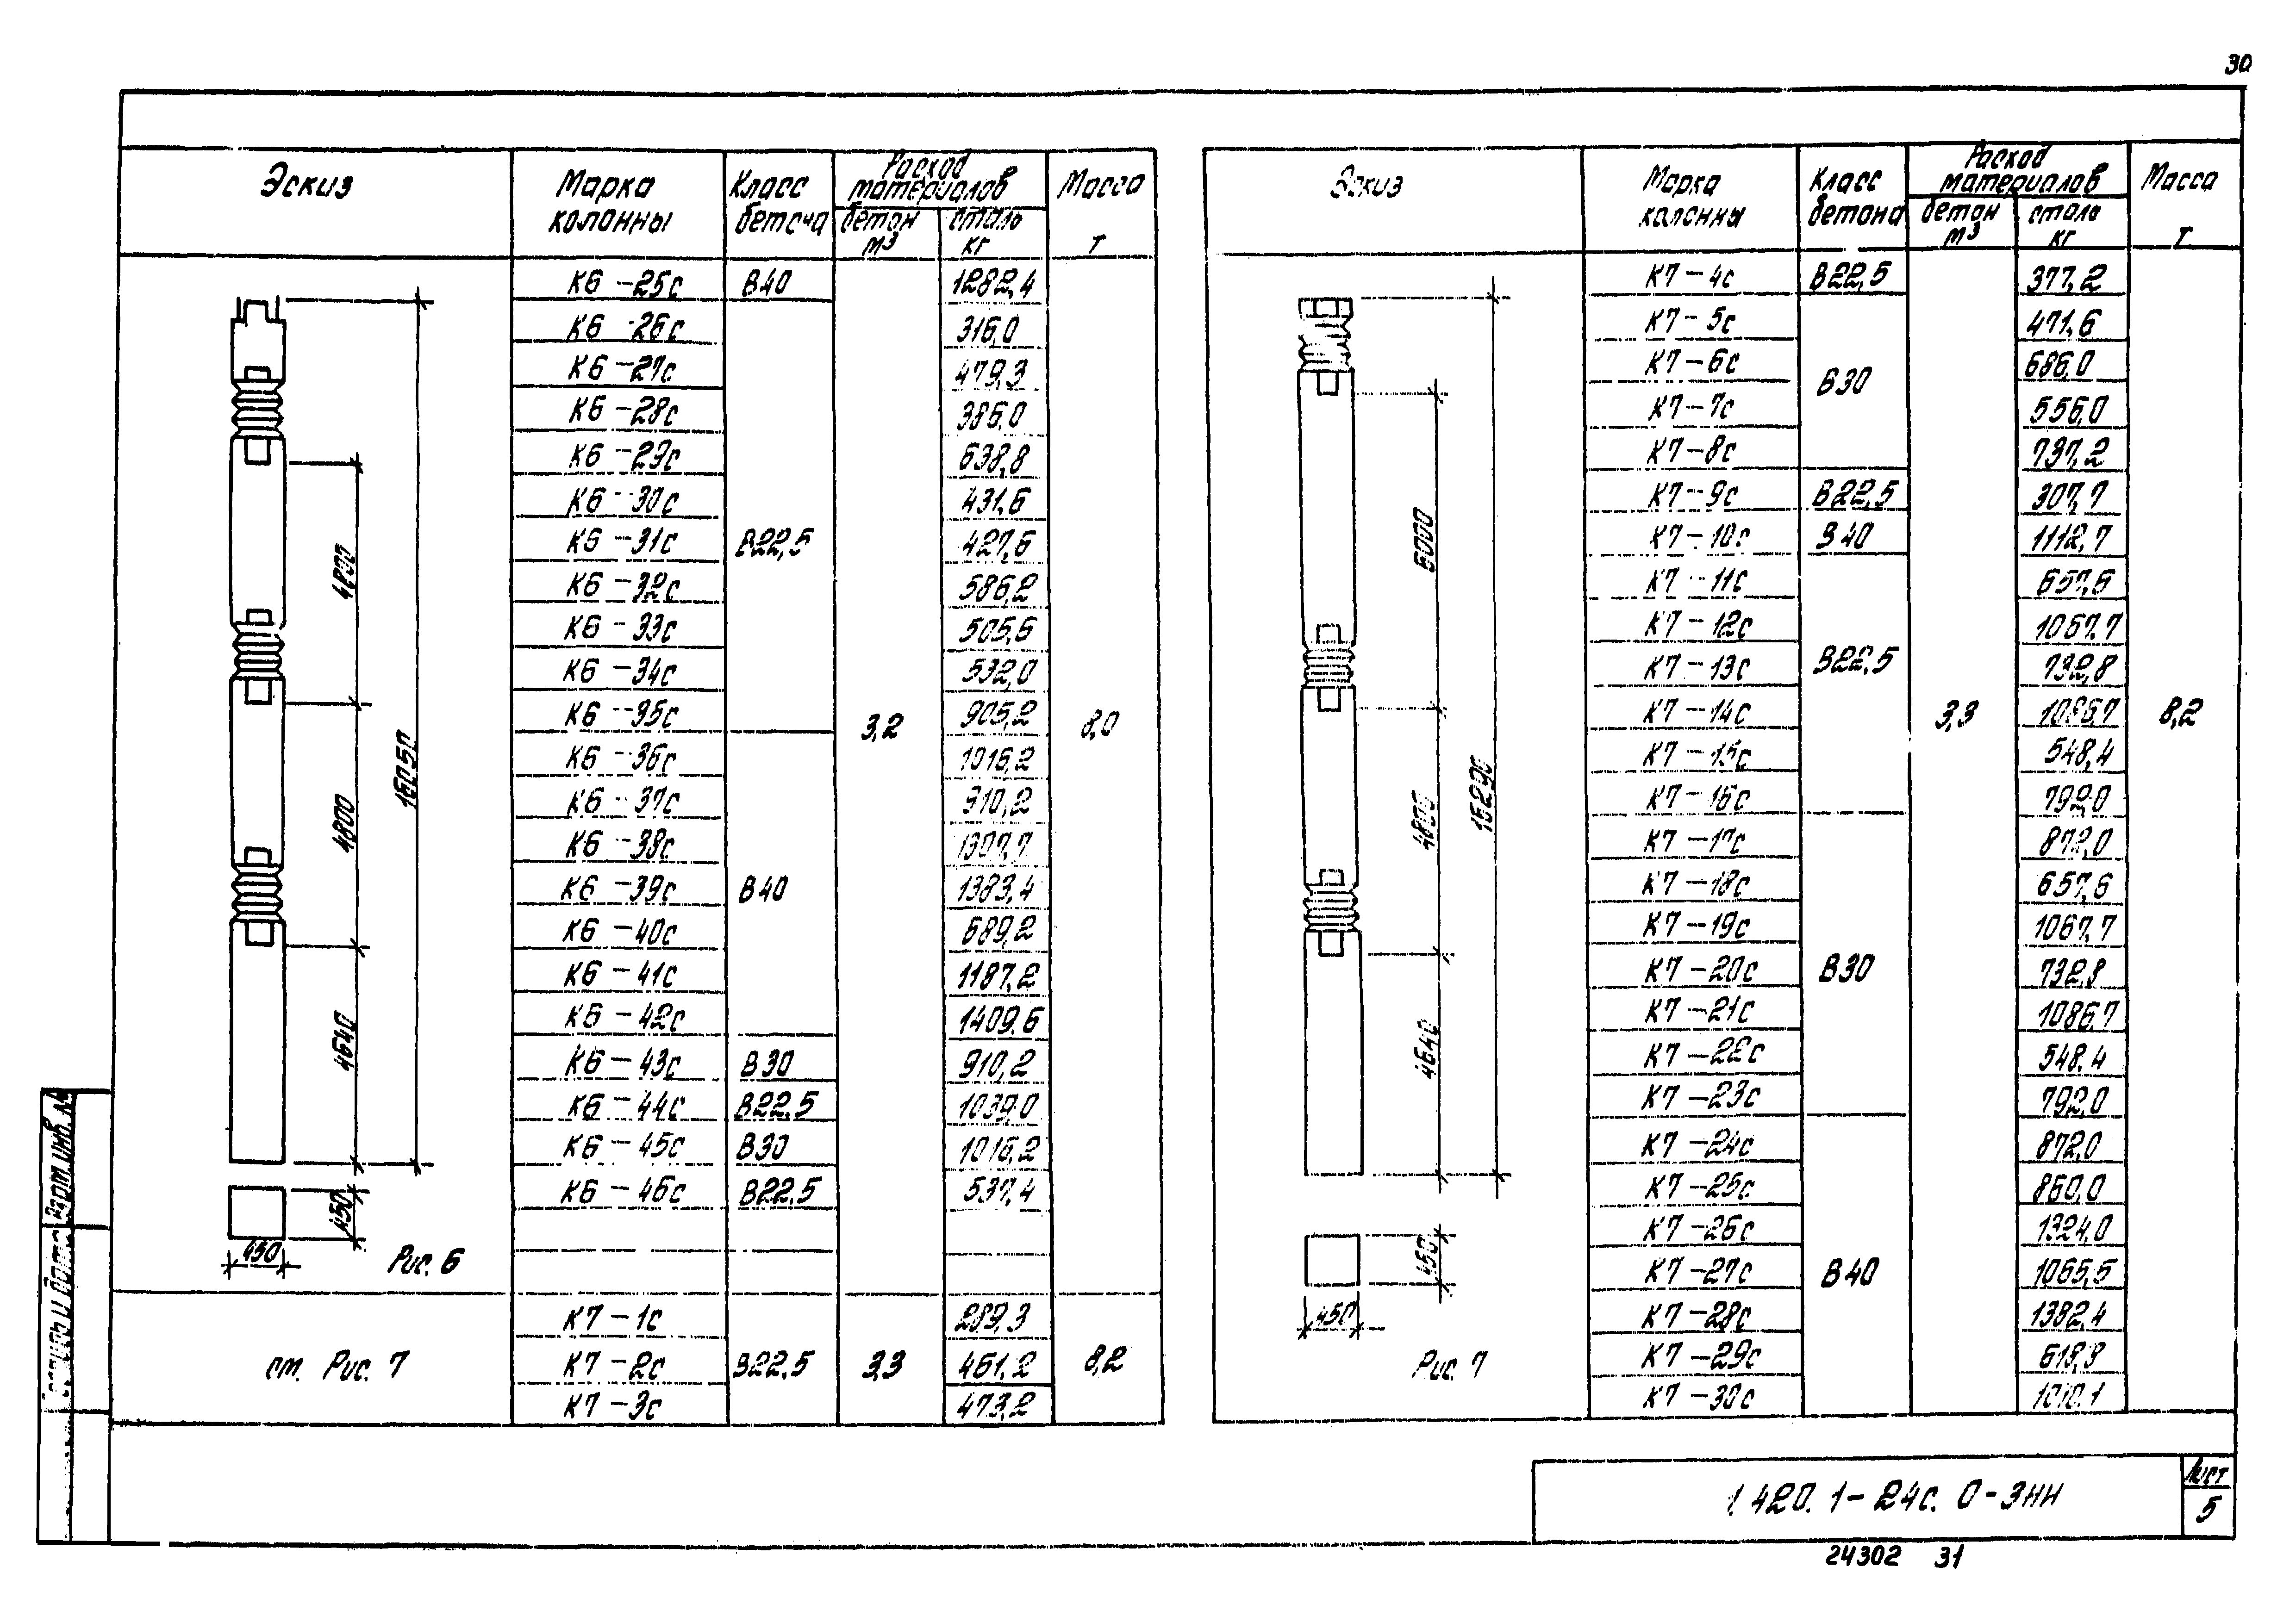 30
Эскиз
Марка колонны
Класс бетона
Расход материалов
бетон м3
сталь кг
Масса т
К6-25с В40 1282,4
К6-26с 316,0
К6-27с 479,3
К6-28с 386,0
К6-29с 638,8
К6-30с 431,6
К6-31с В22,5 427,6
К6-32с 586,2
К6-33с 505,6
К6-34с 532,0
К6-35с 3,2 905,2 8,0
К6-36с 1016,2
К6-37с 910,2
К6-38с 1307,7
К6-39с В40 1383,4
К6-40с 689,2
К6-41с 1187,2
К6-42с 1409,6
К6-43с В30 910,2
К6-44с В22,5 1039,0
К6-45с В30 1016,2
К6-46с В22,5 537,4
4800
4800
4640
16050
450
450
Рис. 6
К7-1с 289,3
см. Рис. 7 К7-2с В22,5 3,3 461,2 8,2
К7-3с 473,2
Эскиз
Марка колонны
Класс бетона
Расход материалов
бетон м3
сталь кг
Масса т
К7-4с В22,5 377,2
К7-5с 471,6
К7-6с В30 686,0
К7-7с 556,0
К7-8с 737,2
К7-9с В22,5 307,7
К7-10с В40 1112,7
К7-11с 657,6
К7-12с 1067,7
К7-13с В22,5 732,8
К7-14с 3,3 1086,7 8,2
К7-15с 548,4
К7-16с 792,0
К7-17с 872,0
К7-18с 657,6
К7-19с 1067,7
К7-20с В30 732,8
К7-21с 1086,7
К7-22с 548,4
К7-23с 792,0
К7-24с 872,0
К7-25с 860,0
К7-26с 1324,0
К7-27с В40 1065,5
К7-28с 1382,4
К7-29с 618,8
К7-30с 1010,1
6000
4800
4640
16290
450
450
Рис. 7
Взам. инв. №
Подпись и дата
1.420.1-24с. 0-3НИ
Лист
5
24302 31